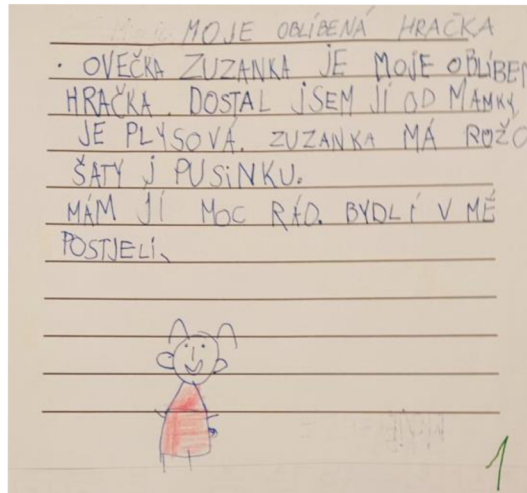 MOJE OBLÍBENÁ HRAČKA
. OVEČKA ZUZANKA JE MOJE OBLÍBEN
HRAČKA. DOSTAL JSEM JÍ OD MAMKY
JE PLYSOVÁ. ZUZANKA MÁ ROŽO
ŠATY J PUSINKU.
MÁM JÍ MOC RÁD. BYDLÍ V MÉ
POSTJELI.
1